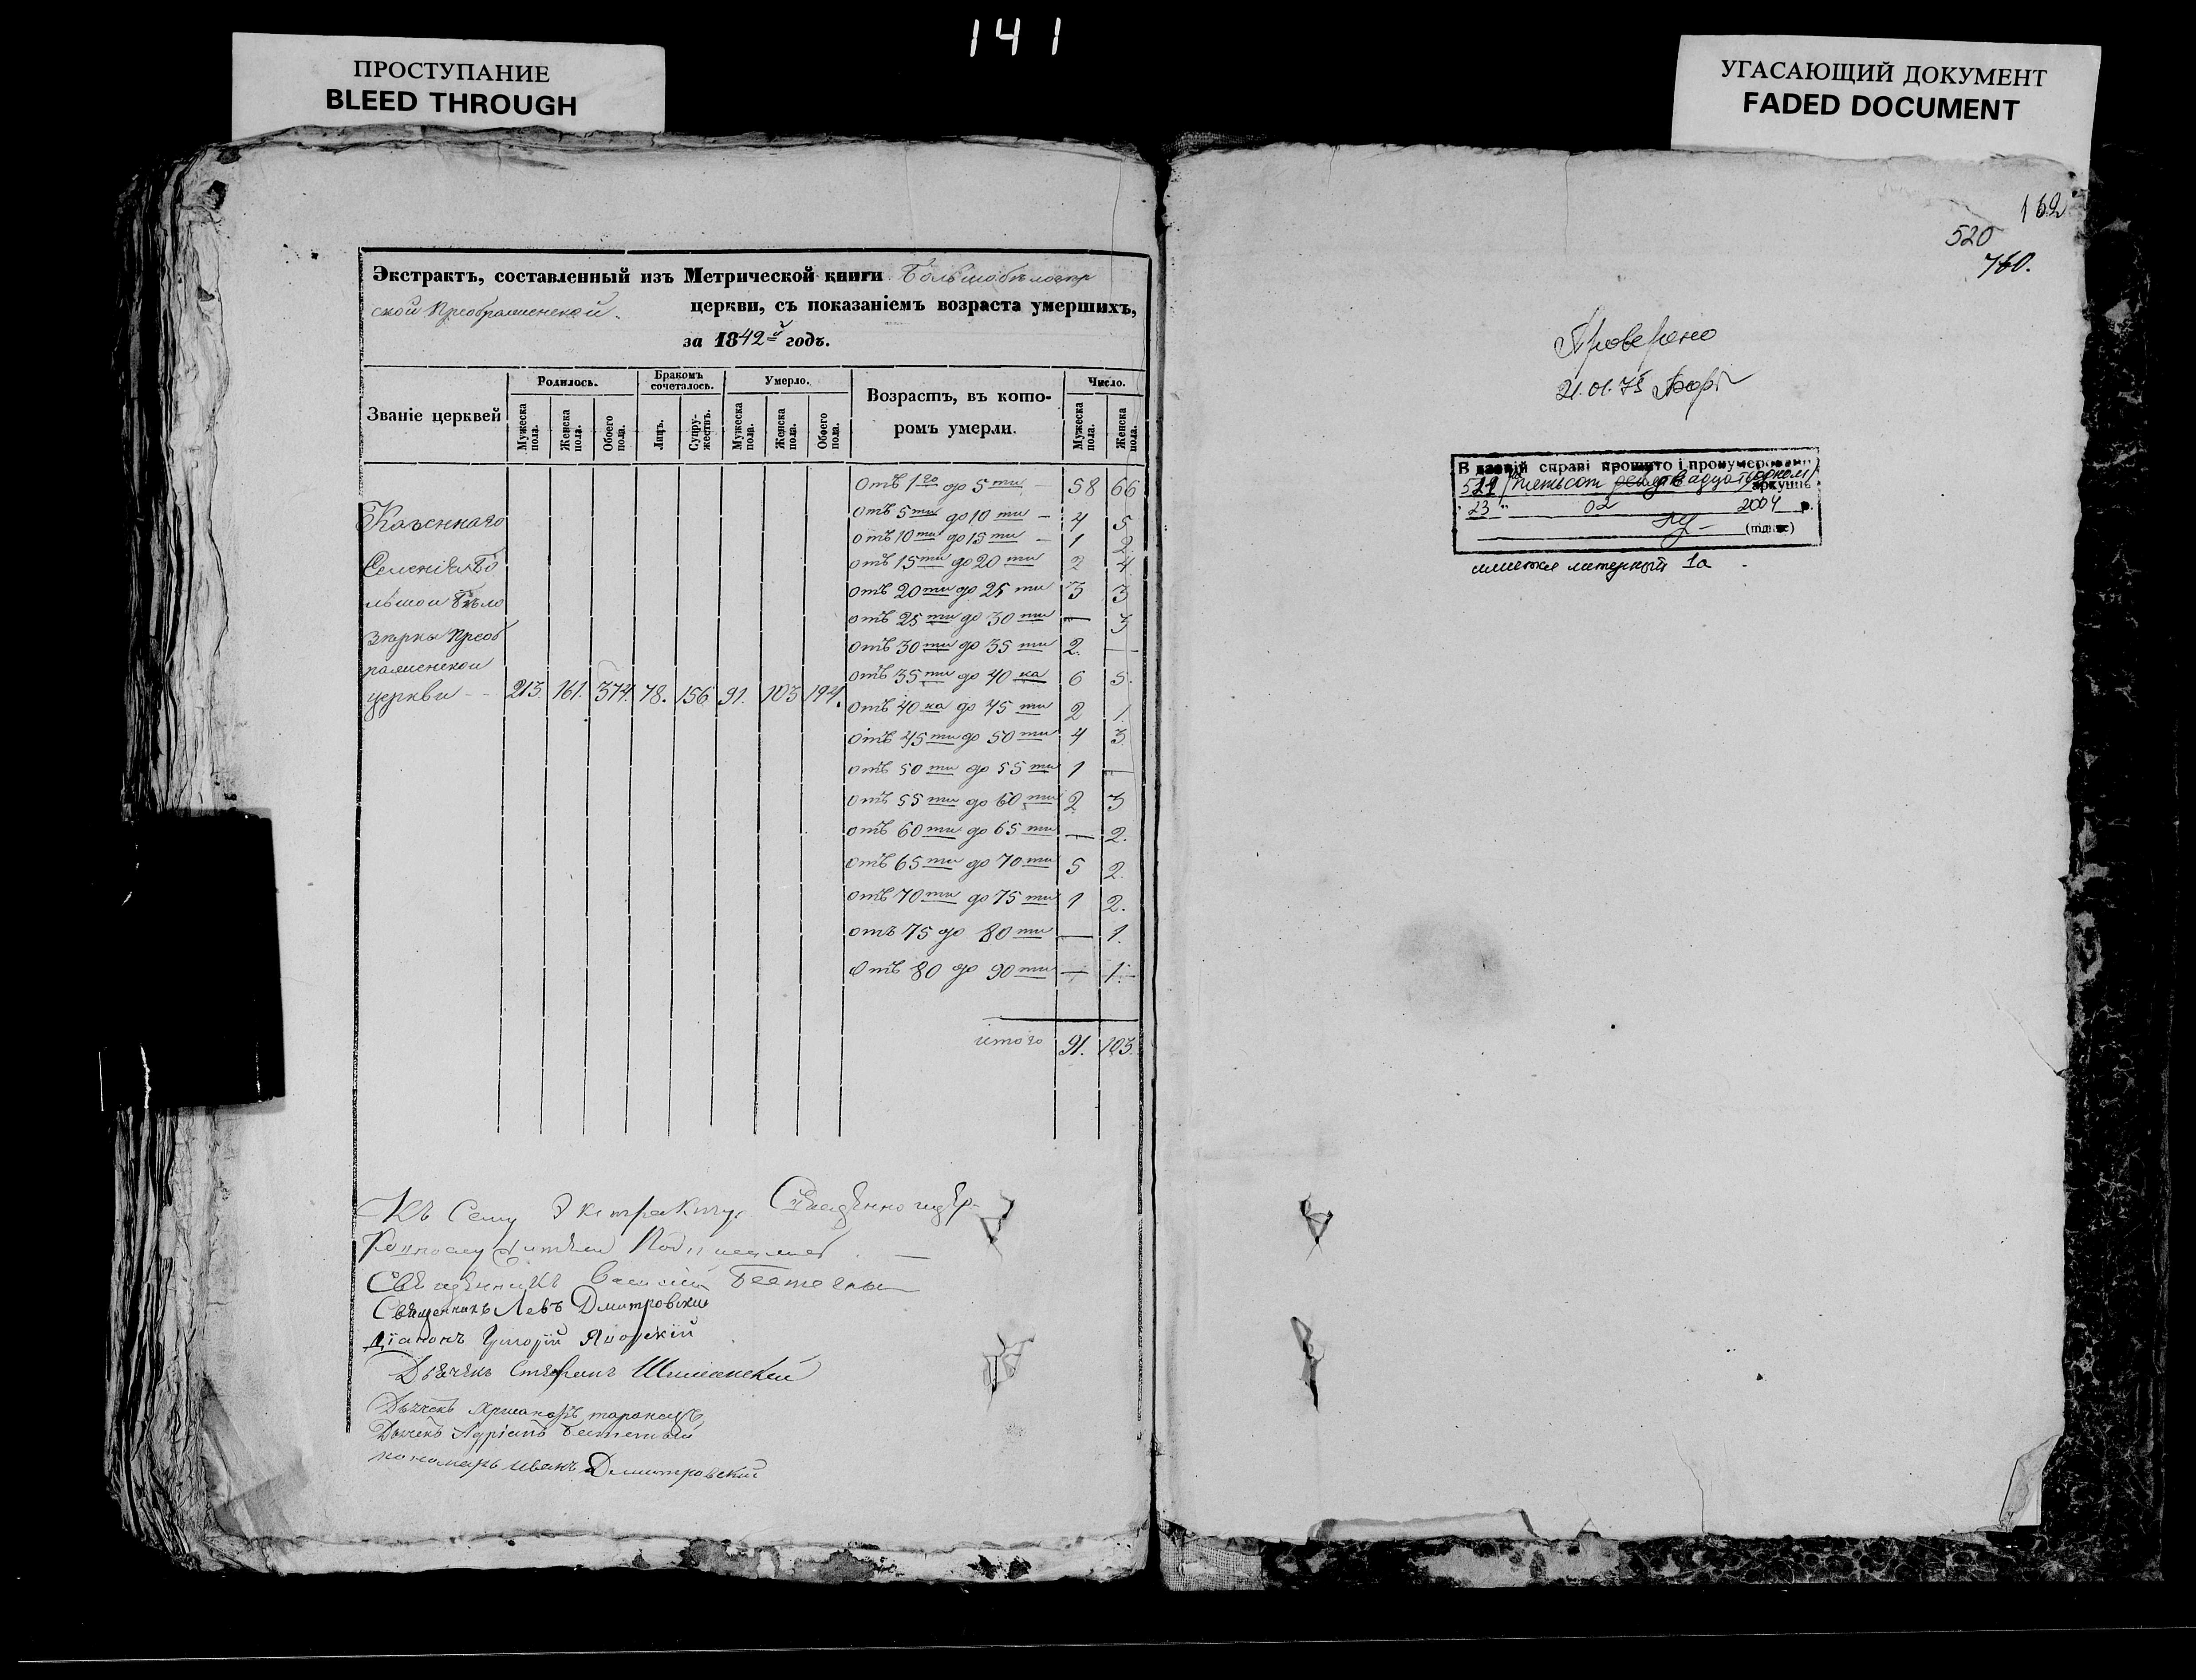 141
ПРОСТУПАНИЕ
BLEED THROUGH
УГАСАЮЩИЙ ДОКУМЕНТ
FADED DOCUMENT
Экстрактъ, составленный изъ Метрической книги Большобѣлозер
ской Преображенской. церкви, съ показаніемъ возраста умершихъ,
за 1842й годъ.
Званіе церквей
Родилось.
Мужеска пола.
Женска пола.
Обоего пола.
Бракомъ сочеталось.
Лицъ.
Супружествъ.
Умерло.
Мужеска пола.
Женска пола.
Обоего пола.
Возрастъ, въ которомъ умерли.
Число.
Мужеска пола.
Женска пола.
Казеннаго
Селенія Бо
льшой Бѣло
зерки Преоб
раженской
церкви - - 213. 161. 374. 78. 156 91. 103 194.
Отъ 1го до 5ти - 58 66
отъ 5ти до 10ти - 4 5
отъ 10ти до 15ти - 1 2
отъ 15ти до 20ти 2 4
отъ 20ти до 25ти 3 3
отъ 25ти до 30ти — 3
отъ 30ти до 35ти 2. —
отъ 35ти до 40ка 6 5.
отъ 40ка до 45ти 2 1.
отъ 45ти до 50ти 4 3
отъ 50ти до 55ти 1 —
отъ 55ти до 60ти 2 3
отъ 60ти до 65ти — 2.
отъ 65ти до 70ти 5 2.
отъ 70ти до 75ти 1 2.
отъ 75 до 80ти — 1.
Отъ 80 до 90ти — 1.
итого 91. 103.
Къ Сему Экстракту Священноцер-
Священникъ Василій
Священникъ Левъ Дмитровскій
Діаконъ Григорій
Дьячекъ Стефанъ
Дьячекъ
Дьячекъ Адріанъ
пономарь Иванъ Дмитровскій
162
520
760.
Проверено
21.01.75
В даній справі прошито і пронумеровано
521 аркушів
"23" 02 2004 р.
(підпис)
литерный 1а